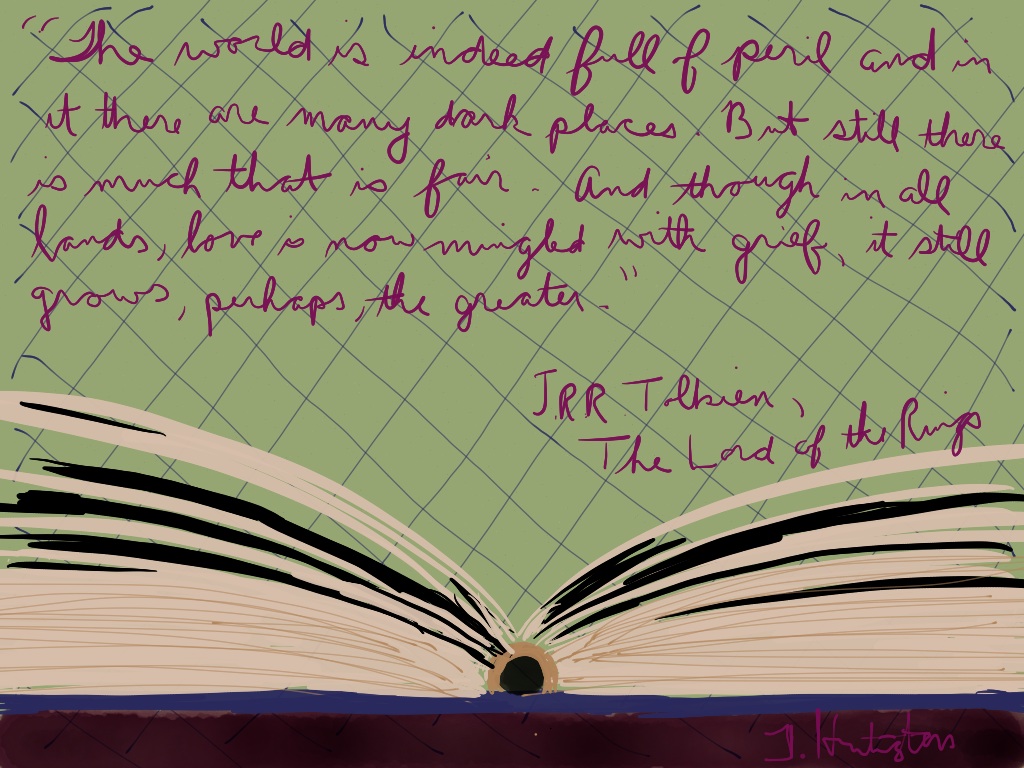 "The world is indeed full of peril and in
it there are many dark places. But still there
is much that is fair. And though in all
lands, love is now mingled with grief, it still
grows, perhaps, the greater."
JRR Tolkien,
The Lord of the Rings
J. Huntington